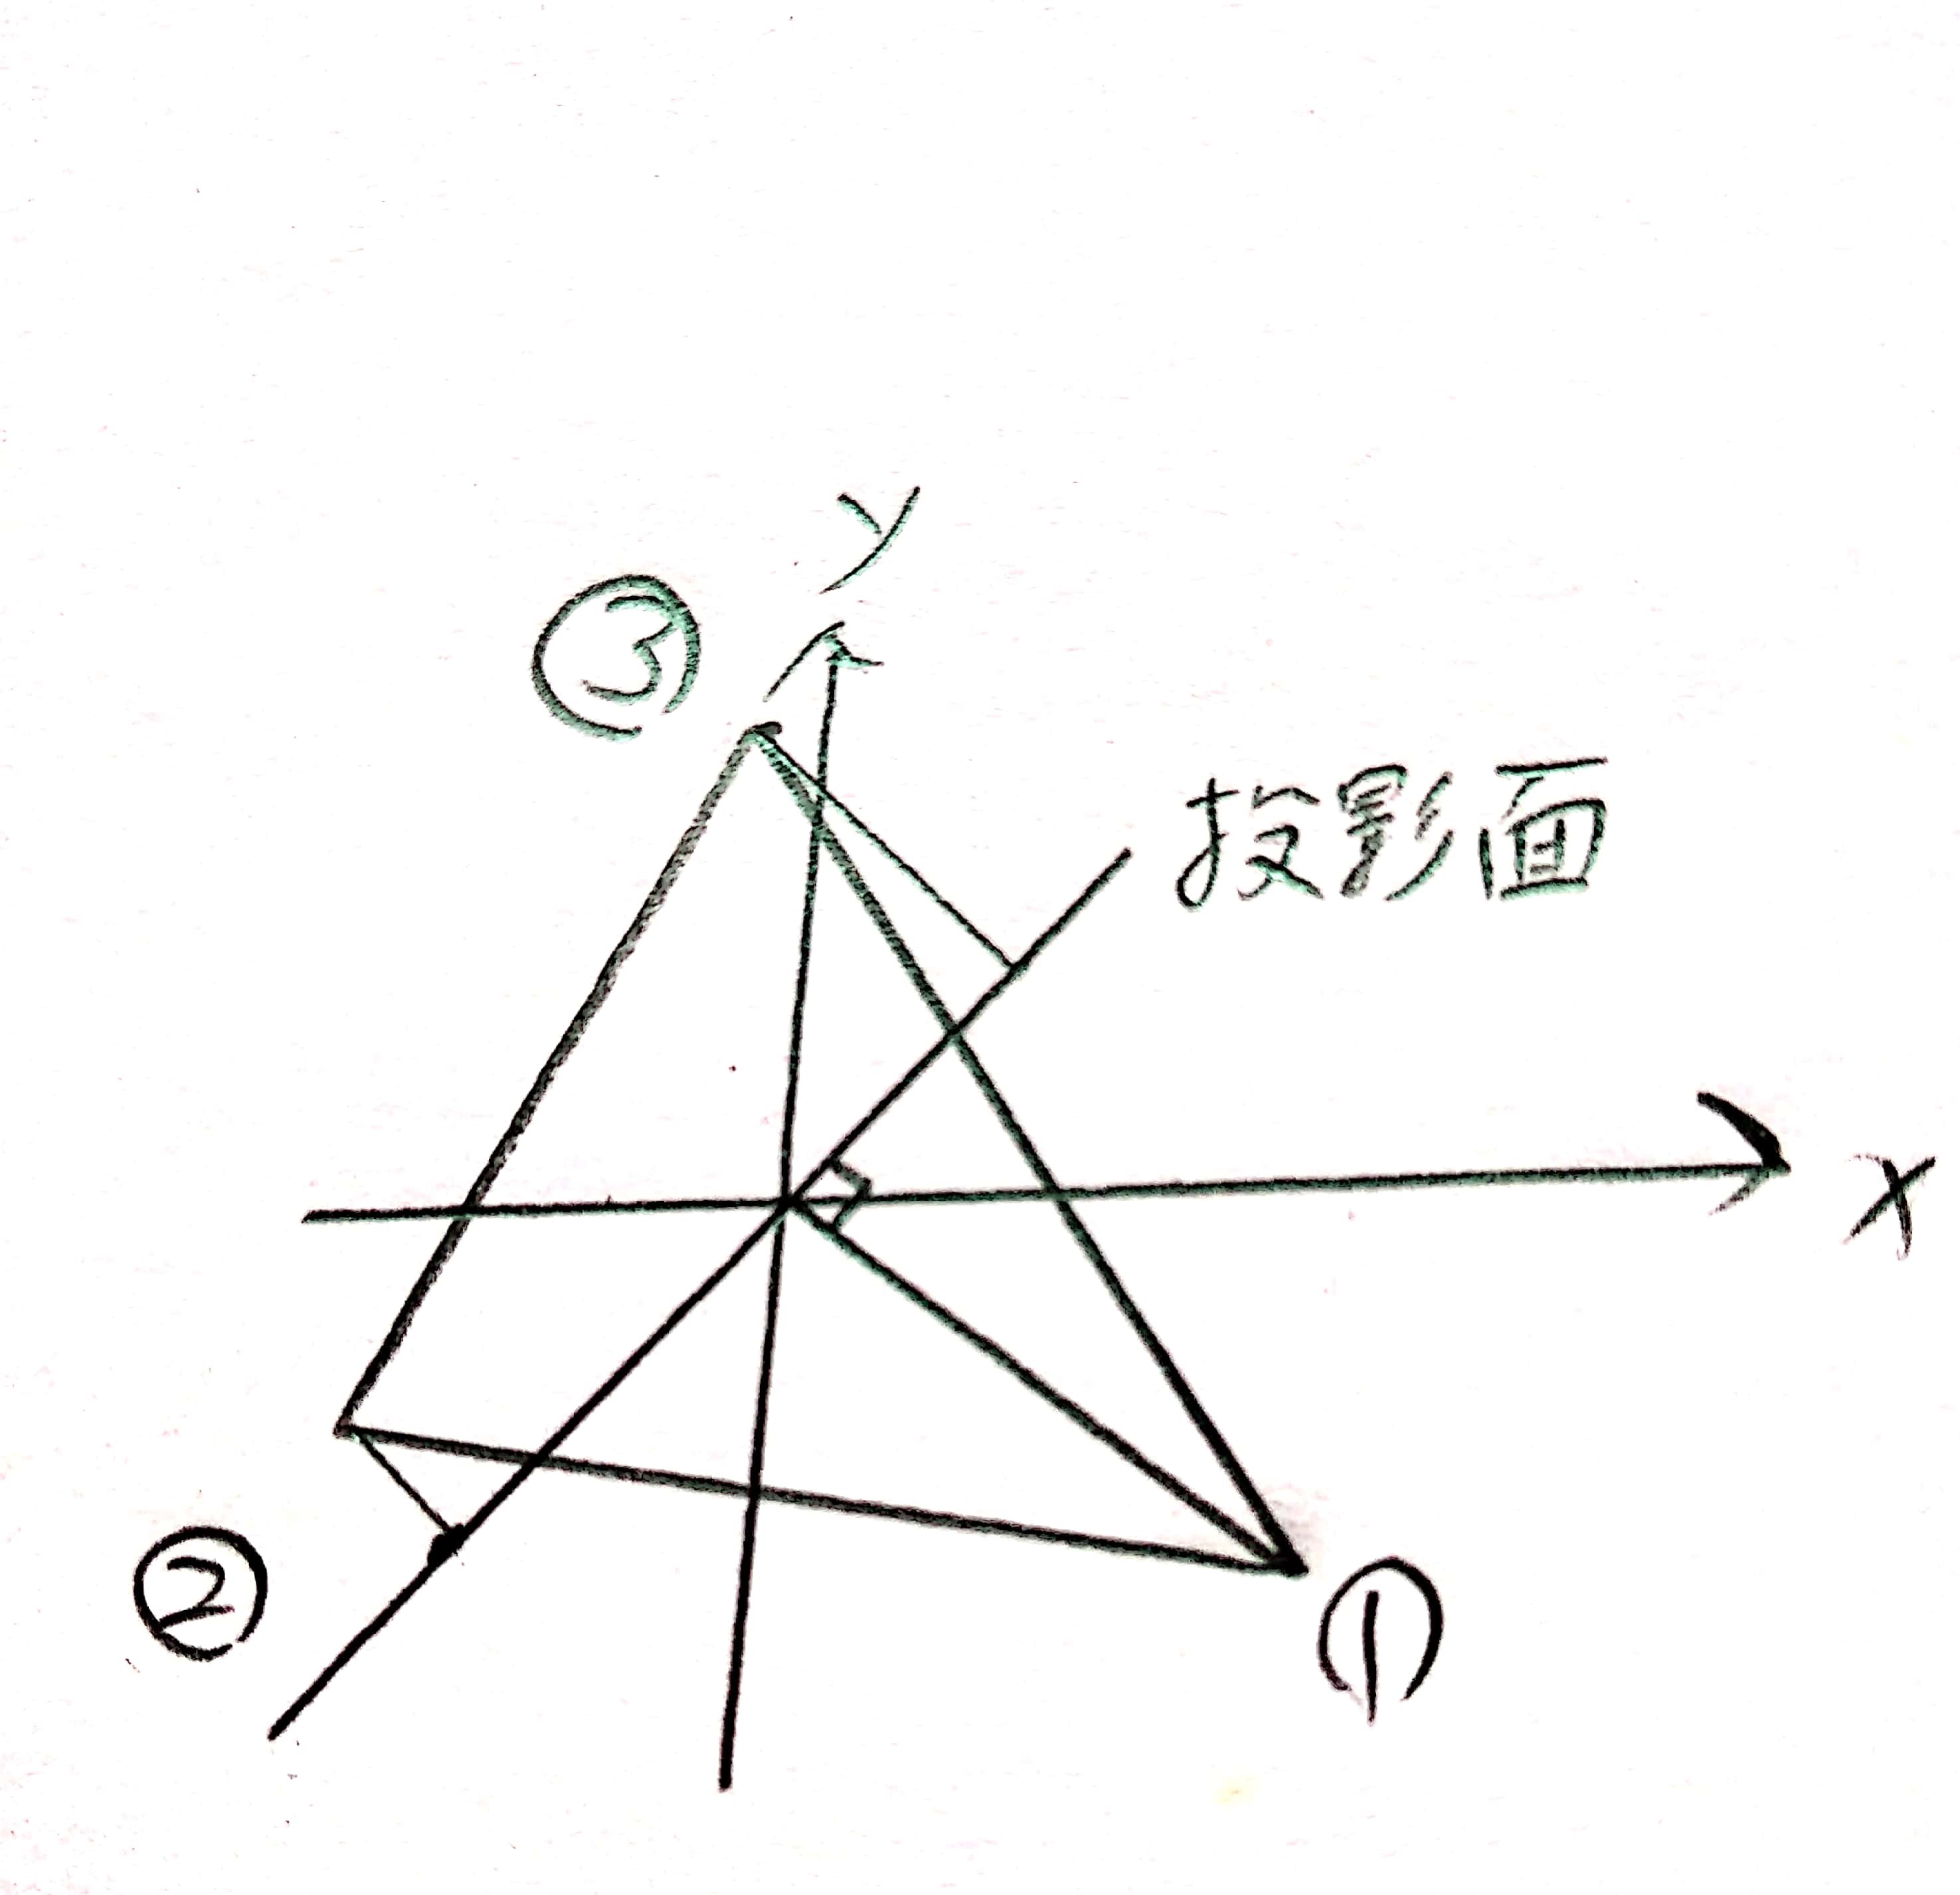 y
③
投影面
x
②
①